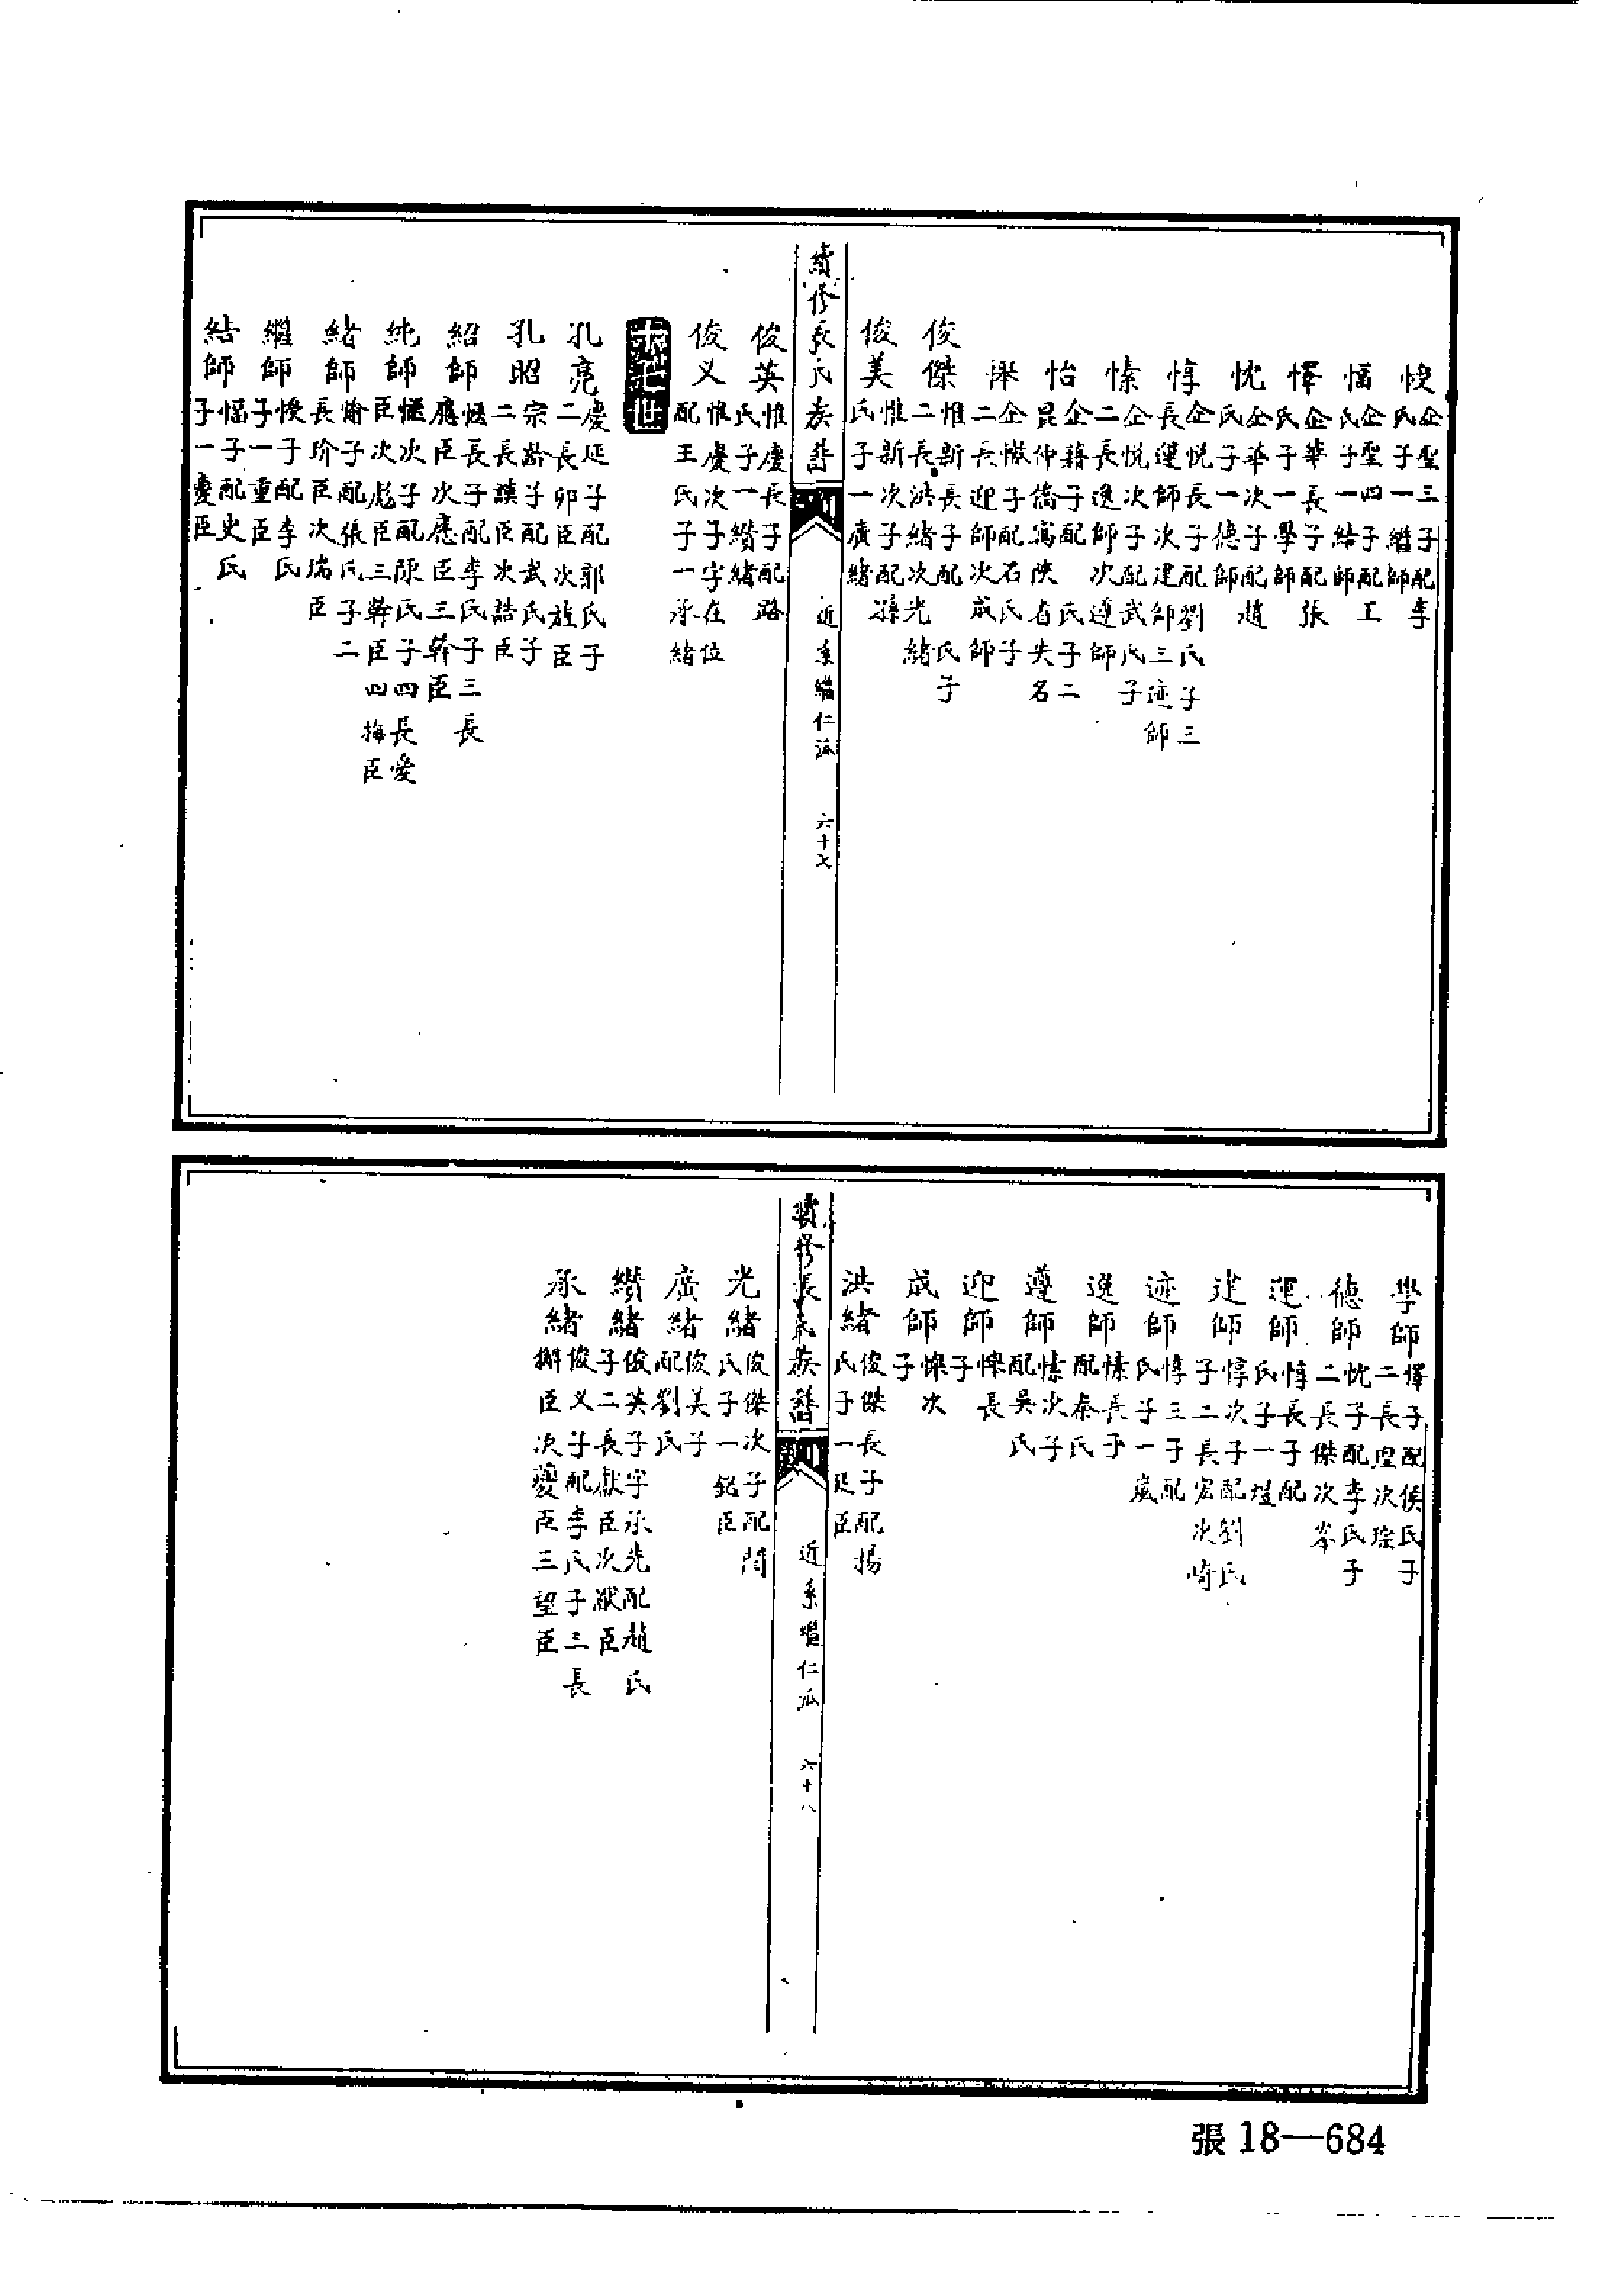 悛 企聖三子配李
氏子一繼師
愊 企聖四子配王
氏子一結師
懌 企華長子配張
氏子一學師
忱 企華次子配趙
氏子一德師
惇 企悅長子配劉氏子三
長運師次建師三迹師
愫 企悅次子配武氏子
二長逸師次遵師
怡 企藉子配 氏子二
昆仲僑寓陝省失名
企 子配石氏子
二長迎師次成師
俊傑 惟新長子配 氏子
二長洪緒次光緒
俊美 惟新次子配孫
氏子一廣緒
續修張氏族譜
近系繼仁派
六十七
俊英 惟慶長子配路
氏子一纘緒
俊义 惟慶次子字在位
配王氏子一承緒
世
孔亮 慶延子配郭氏子
二長卯臣次旌臣
孔昭 宗齡子配武氏子
二長謨臣次誥臣
紹師 愜長子配李氏子三長
膺臣次應臣三幹臣
純師 愜次子配陳氏子四長愛
臣次彪臣三幹臣四梅臣
緒師 愉子配張氏子二
長玠臣次瑞臣
繼師 悛子配李氏
子一重臣
結師 愊子配史氏
子一夔臣
學師 懌子配侯氏子
二長 次琮
德師 忱子配李氏子
二長傑次岑
運師 惇長子配
氏子一塏
建師 惇次子配劉氏
子二長宏次崎
迹師 惇三子配
氏子一嵗
逸師 愫長子
配秦氏
遵師 愫次子
配吳氏
迎師 長
子
成師 次
子
洪緒 俊傑長子配楊
氏子一廷臣
續修張氏族譜
近系繼仁派
六十八
光緒 俊傑次子配閆
氏子一銘臣
廣緒 俊美子
配劉氏
纘緒 俊英子字承先配趙氏
子二長獻臣次猷臣
承緒 俊义子配李氏子三長
獬臣次夔臣三望臣
張 18—684